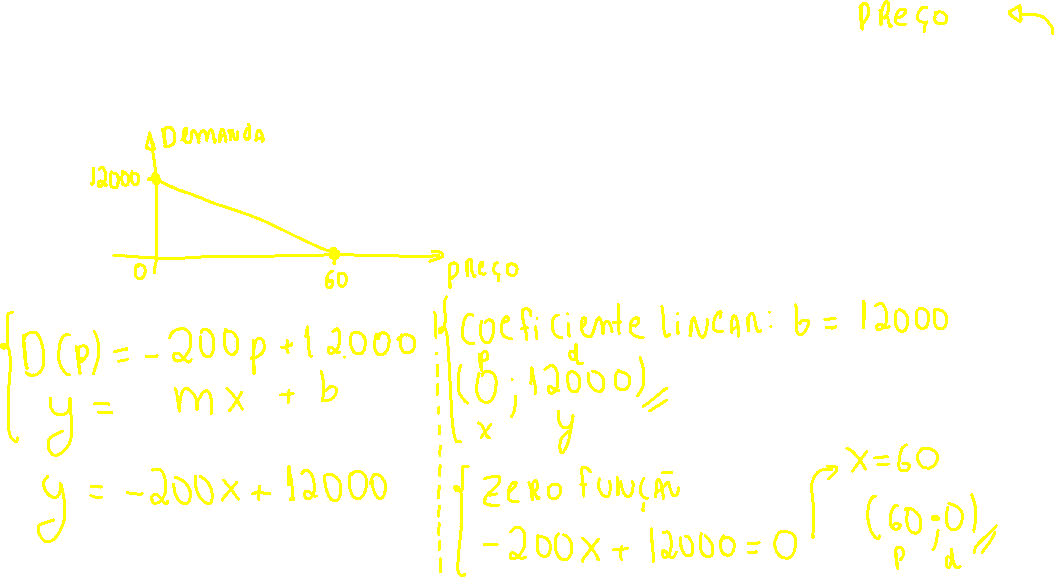 PReço
DemANdA
12000
0
60
pReço
D(p) = -200p + 12000
y = mx + b
y = -200x + 12000
coeficiente LiNeAR: b = 12000
p d
(0; 12000)
x y
ZeRO fUNçÃO
-200x + 12000 = 0
x = 60
(60; 0)
p d